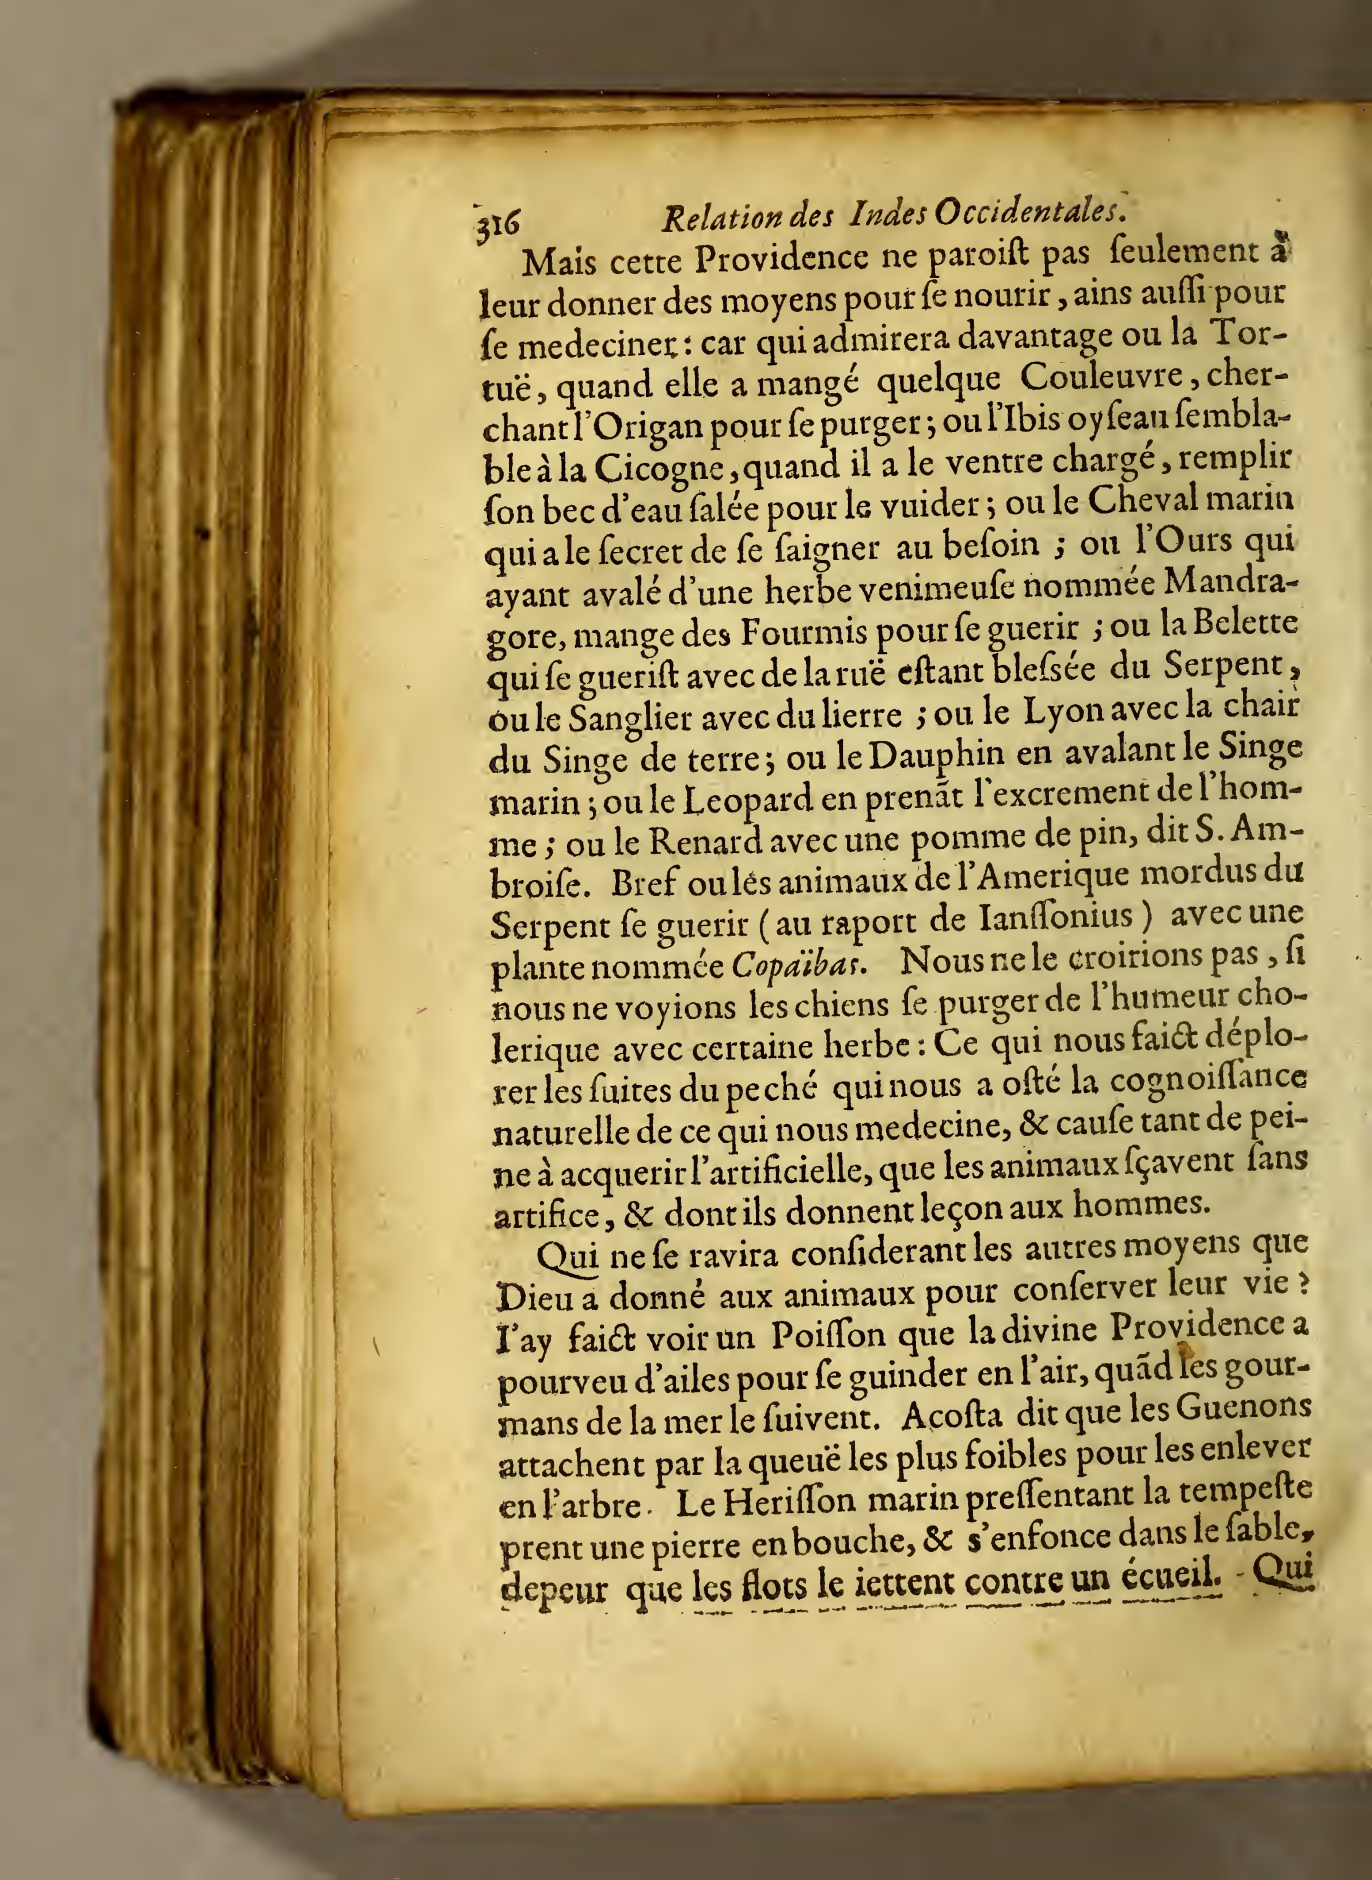 316 Relation des Indes Occidentales.
Mais cette Providence ne paroiſt pas ſeulement à
leur donner des moyens pour ſe nourir, ains auſſi pour
ſe medeciner: car qui admirera davantage ou la Tor-
tuë, quand elle a mangé quelque Couleuvre, cher-
chant l'Origan pour ſe purger; ou l'Ibis oyſeau ſembla-
ble à la Cicogne, quand il a le ventre chargé, remplir
ſon bec d'eau ſalée pour le vuider; ou le Cheval marin
qui a le ſecret de ſe ſaigner au beſoin; ou l'Ours qui
ayant avalé d'une herbe venimeuſe nommée Mandra-
gore, mange des Fourmis pour ſe guerir; ou la Belette
qui ſe gueriſt avec de la ruë eſtant bleſsée du Serpent,
ou le Sanglier avec du lierre; ou le Lyon avec la chair
du Singe de terre; ou le Dauphin en avalant le Singe
marin; ou le Leopard en prenãt l'excrement de l'hom-
me; ou le Renard avec une pomme de pin, dit S. Am-
broiſe. Bref ou les animaux de l'Amerique mordus du
Serpent ſe guerir (au raport de Ianſſonius) avec une
plante nommée Copaïbas. Nous ne le croirions pas, ſi
nous ne voyions les chiens ſe purger de l'humeur cho-
lerique avec certaine herbe: Ce qui nous faict déplo-
rer les ſuites du peché qui nous a oſté la cognoiſſance
naturelle de ce qui nous medecine, & cauſe tant de pei-
ne à acquerir l'artificielle, que les animaux ſçavent ſans
artifice, & dont ils donnent leçon aux hommes.
Qui ne ſe ravira conſiderant les autres moyens que
Dieu a donné aux animaux pour conſerver leur vie?
I'ay faict voir un Poiſſon que la divine Providence a
pourveu d'ailes pour ſe guinder en l'air, quãd les gour-
mans de la mer le ſuivent. Acoſta dit que les Guenons
attachent par la queuë les plus foibles pour les enlever
en l'arbre. Le Heriſſon marin preſſentant la tempeſte
prent une pierre en bouche, & s'enfonce dans le ſable,
depeur que les flots le iettent contre un écueil. Qui